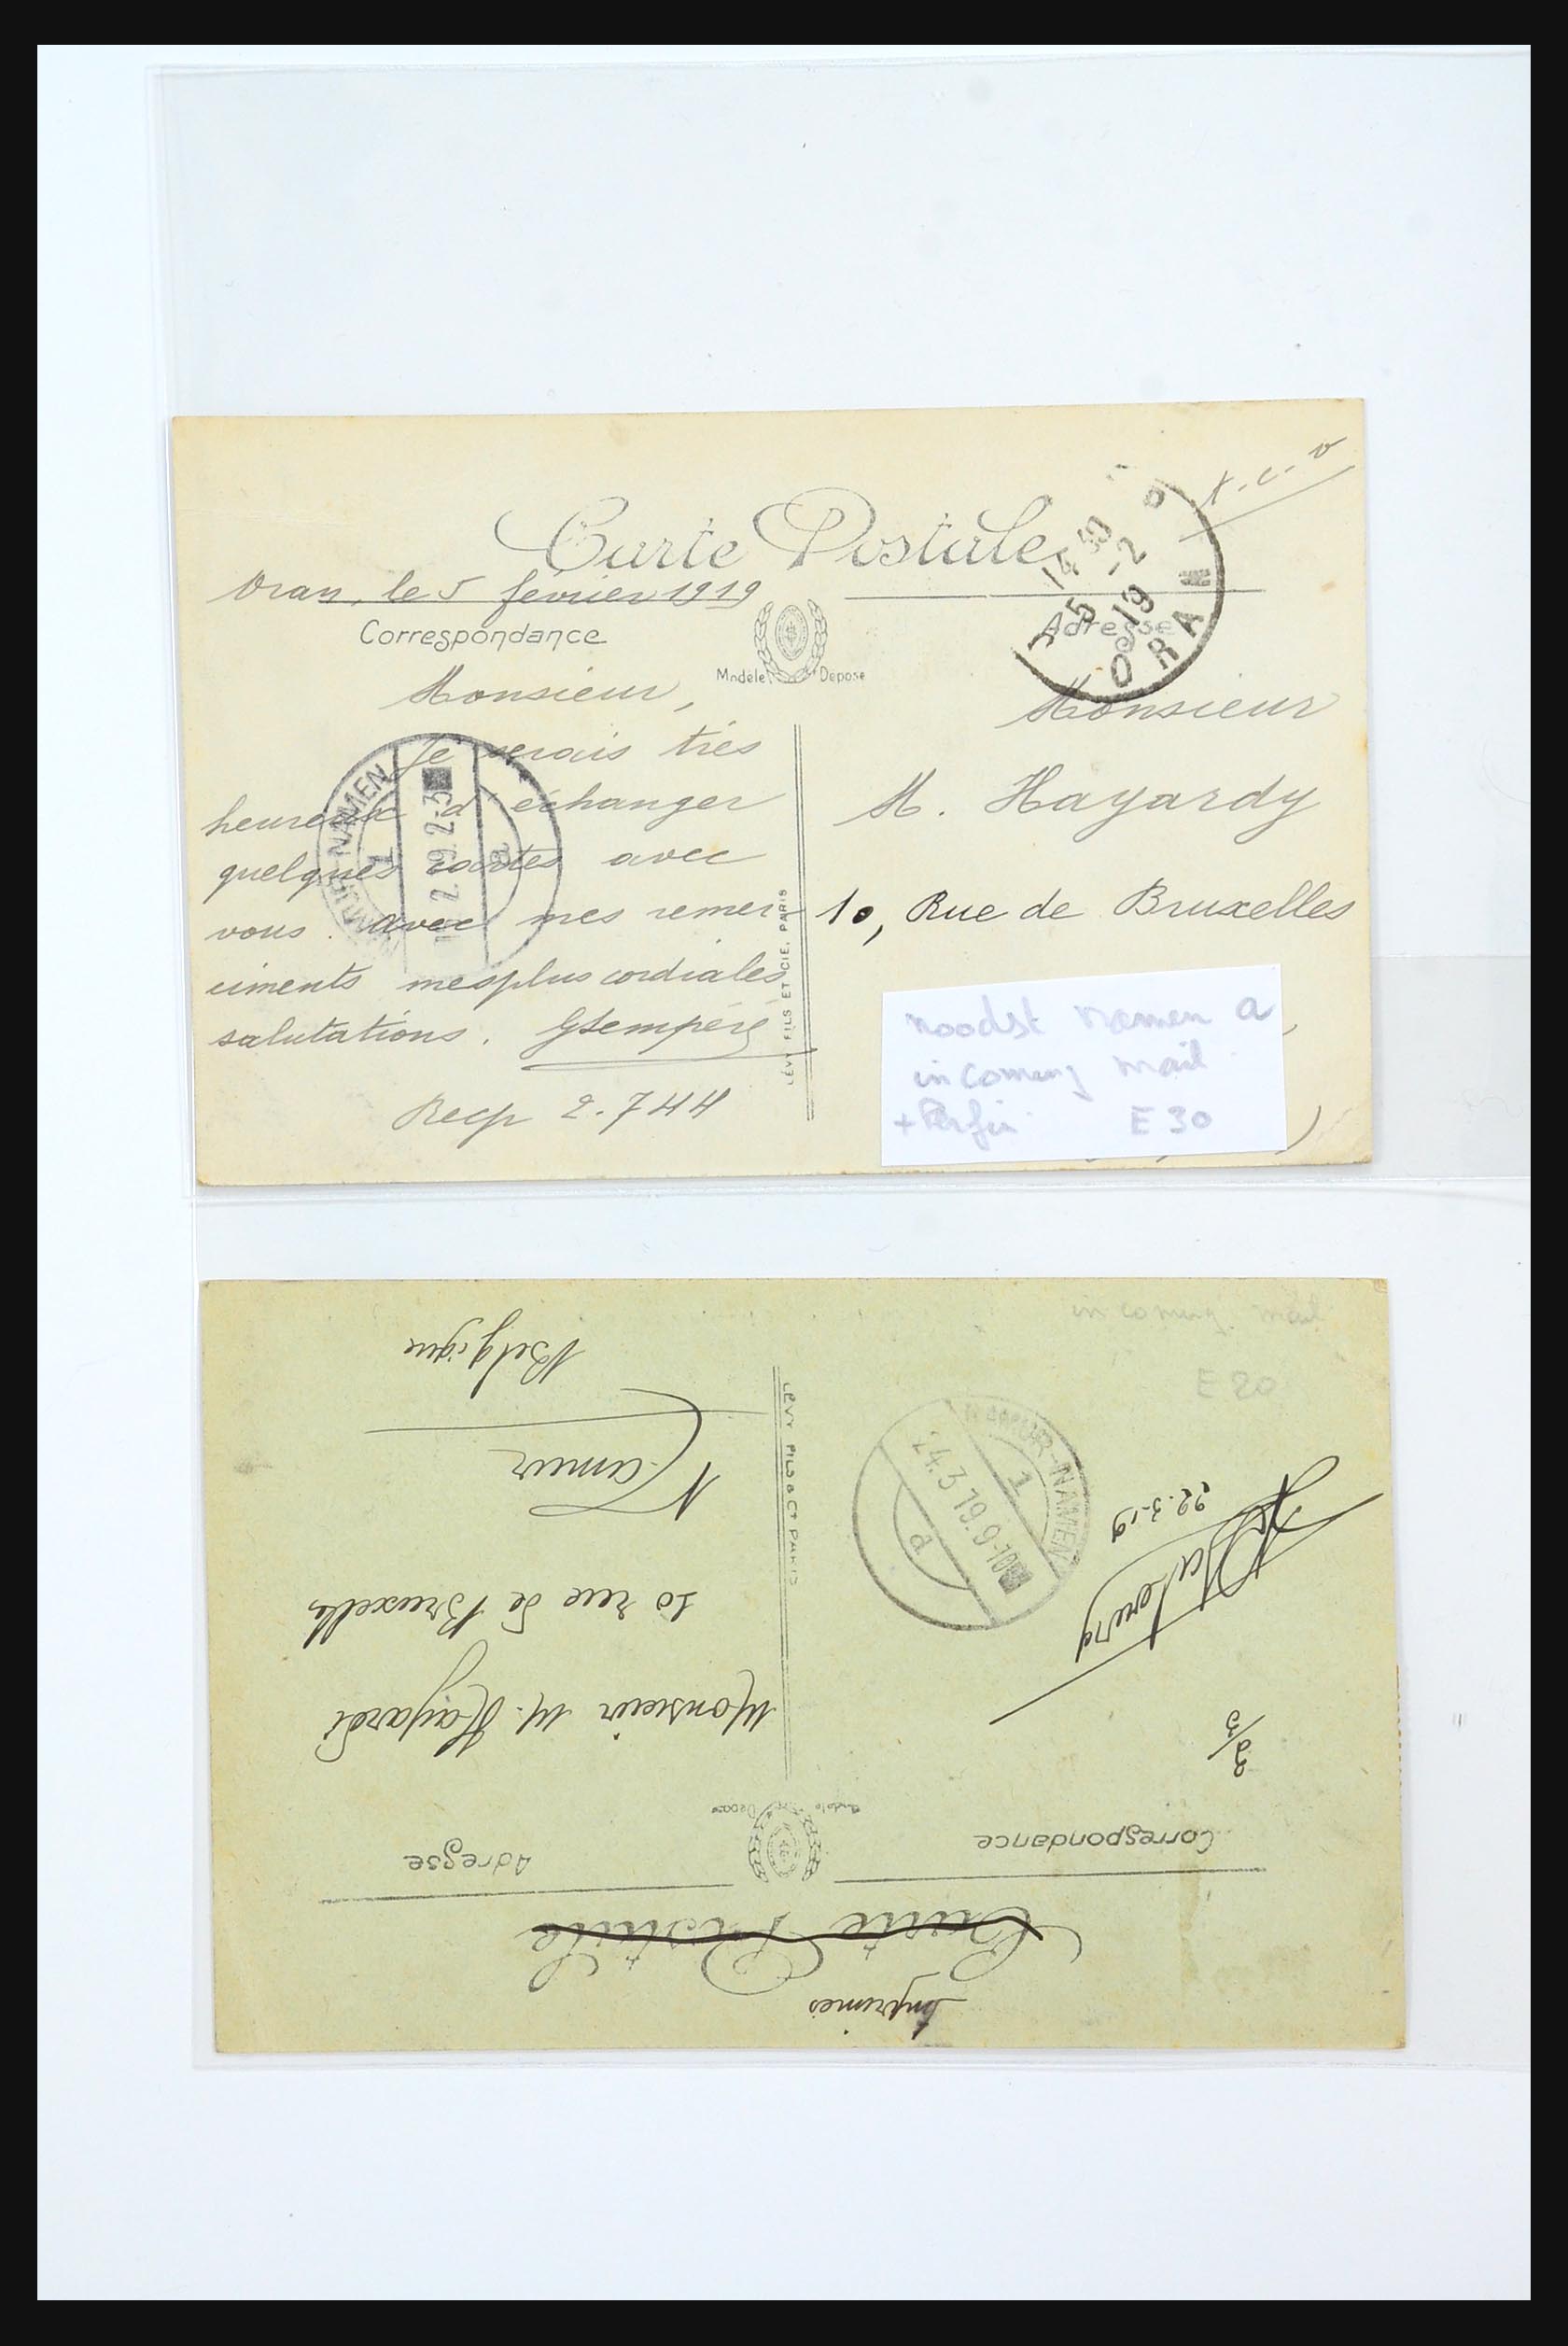 Carte Postale
Oran, le 5 février 1919
Correspondance
Modèle Déposé
Adresse
14 30
5 -2
19
ORAN
Monsieur,
Je serais très
heureux d'échanger
quelques cartes avec
vous. Avec mes remer-
ciments mes plus cordiales
salutations. GSempéré
Recp 2.744
NAMUR-NAMEN
1
a
LÉVY FILS ET CIE, PARIS
Monsieur
M. Hayardy
10, Rue de Bruxelles
noodst Namen a
in coming mail
+ Perfin E 30
in coming mail
E 20
Imprimés
Carte Postale
Correspondance
Adresse
Modèle Déposé
2/3
22-3-19
NAMUR-NAMEN
1
24.3 19.9-10
a
LÉVY FILS & Cie PARIS
Monsieur M. Hayardi
10 rue de Bruxelles
Namur
Belgique